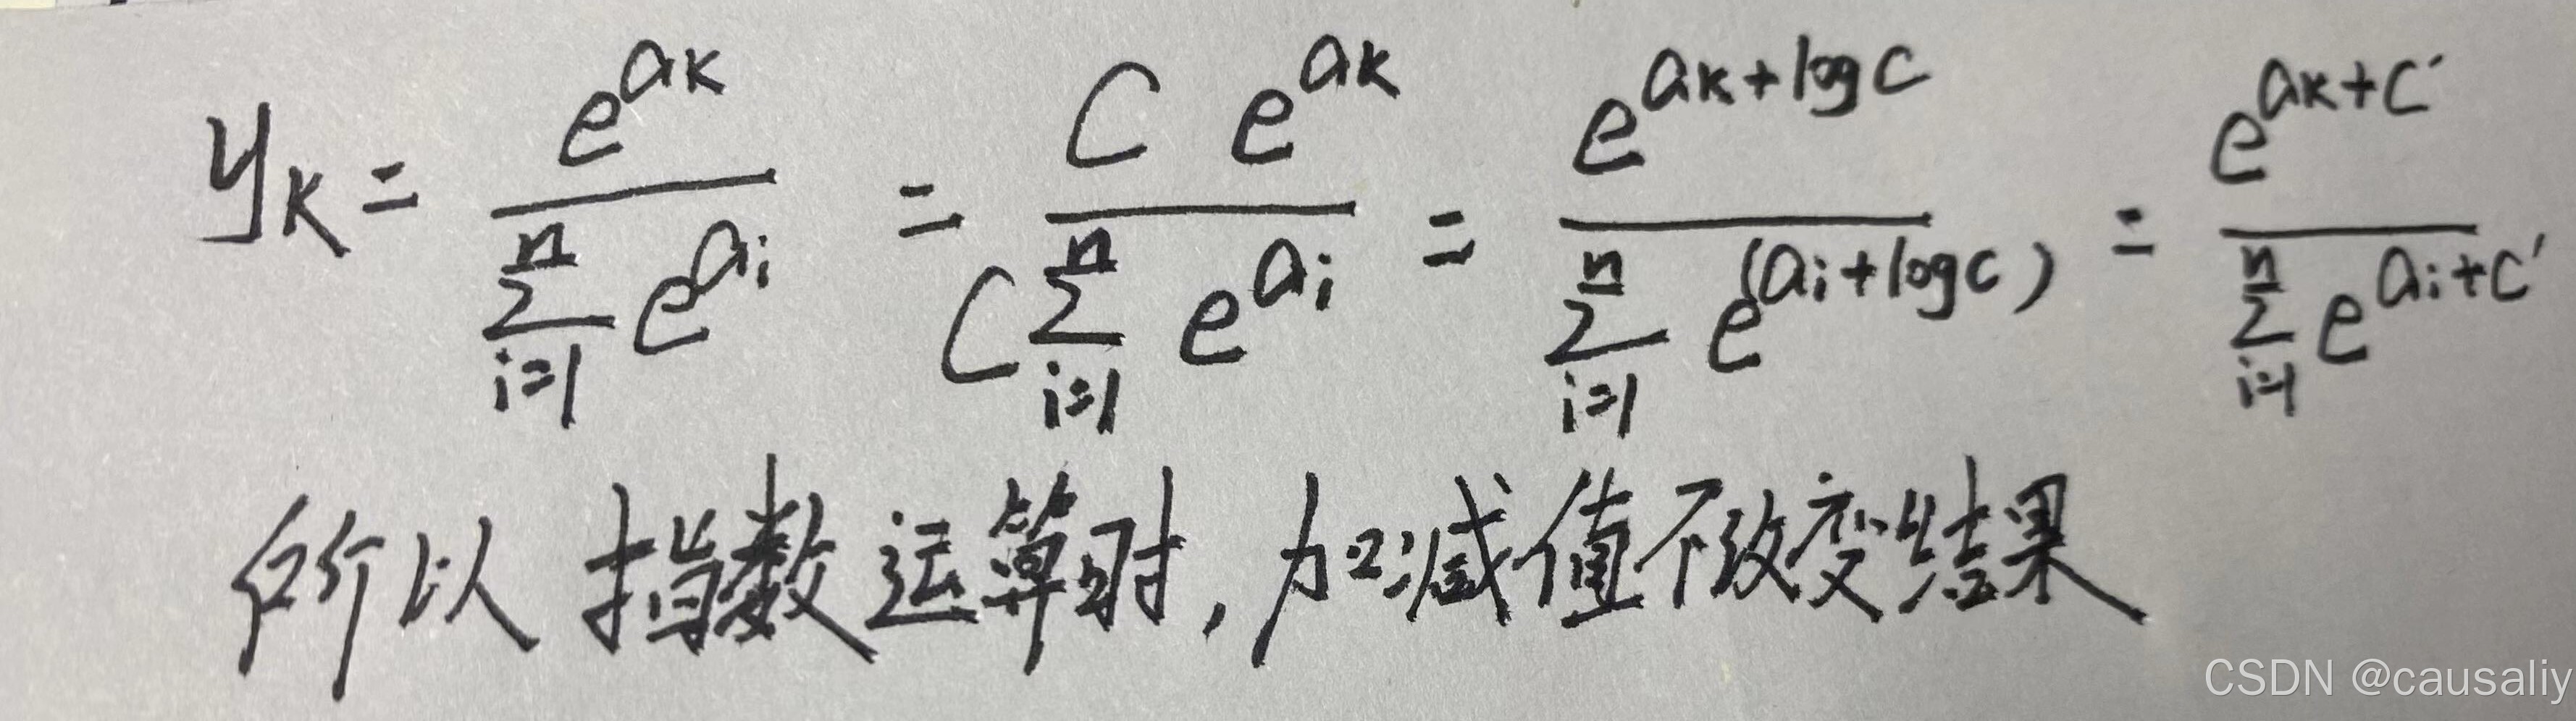 y_k = \frac{e^{a_k}}{\sum_{i=1}^{n} e^{a_i}} = \frac{C e^{a_k}}{C \sum_{i=1}^{n} e^{a_i}} = \frac{e^{a_k + \log C}}{\sum_{i=1}^{n} e^{(a_i + \log C)}} = \frac{e^{a_k + C'}}{\sum_{i=1}^{n} e^{a_i + C'}}
所以指数运算时,加减值不改变结果
CSDN @causaliy